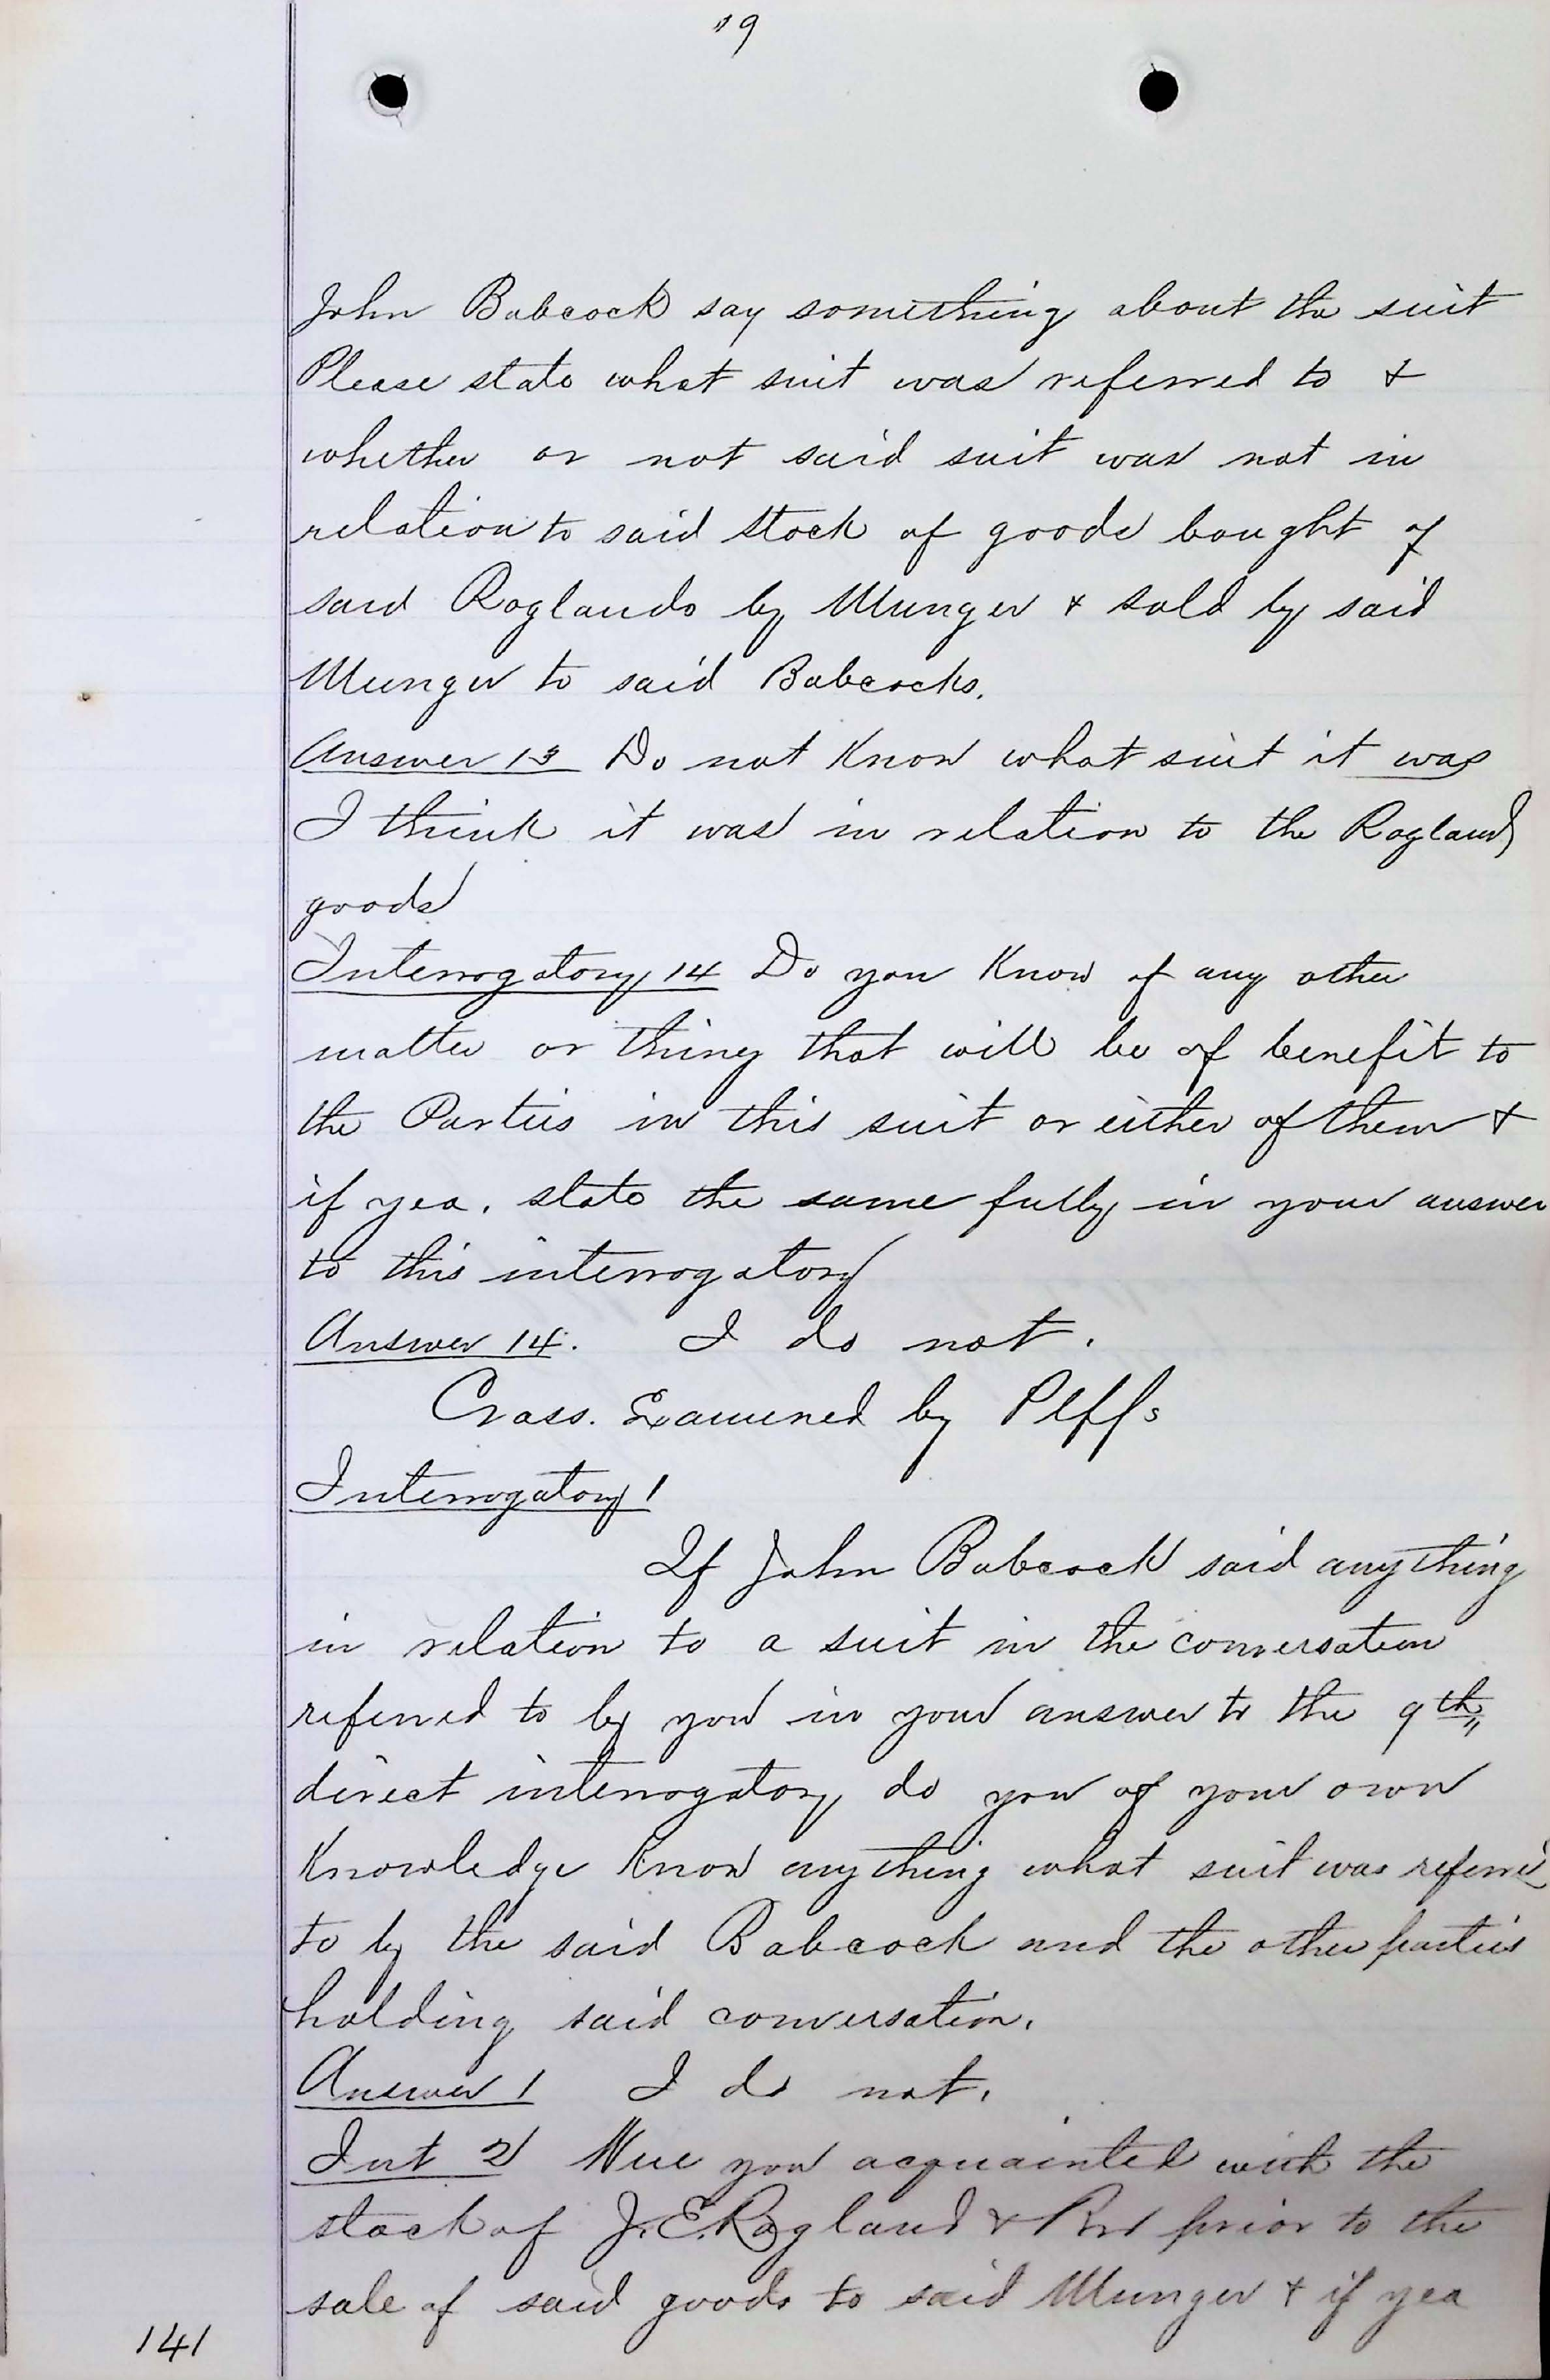 "9
John Babcock say something about the suit
Please state what suit was referred to &
whether or not said suit was not in
relation to said stock of goods bought of
said Raglands by Munger & sold by said
Munger to said Babcocks.
Answer 13 Do not Know what suit it was
I think it was in relation to the Ragland
goods
Interrogatory 14 Do you Know of any other
matter or thing that will be of benefit to
the Parties in this suit or either of them &
if yea, state the same fully in your answer
to this interrogatory
Answer 14. I do not.
Cross. Examined by Plffs
Interrogatory 1
If John Babcock said anything
in relation to a suit in the conversation
referred to by you in your answer to the 9th,,
direct interrogatory do you of your own
Knowledge Know anything what suit was referred
to by the said Babcock and the other parties
holding said conversation.
Answer 1 I do not.
Int 2 Were you acquainted with the
stock of J. E. Ragland & Bro prior to the
sale of said goods to said Munger & if yea
141